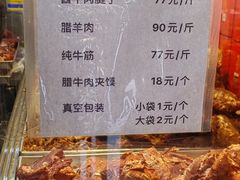 卤牛肉腱子 77元/斤
腊羊肉 90元/斤
纯牛筋 77元/斤
腊牛肉夹馍 18元/个
真空包装 小袋1元/个
大袋2元/个